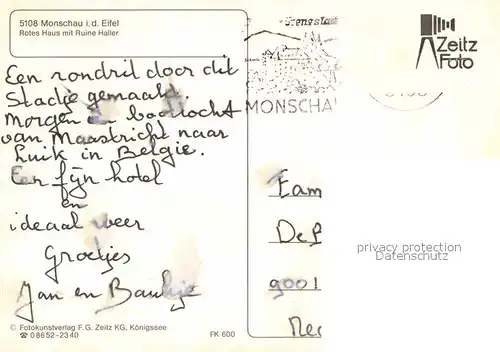 5108 Monschau i. d. Eifel
Rotes Haus mit Ruine Haller
Zeitz
Foto
MONSCHA
Een rondrit door dit
Stadje gemaakt.
Morgen een boottocht
van Maastricht naar
Luik in Belgie.
Een fijn hotel
en
ideaal weer
Groetjes
Jan en Baukje
Fam
DeB
9001
privacy protection
Datenschutz
© Fotokunstverlag F. G. Zeitz KG, Königssee
☎ 08652-2340
FK 600